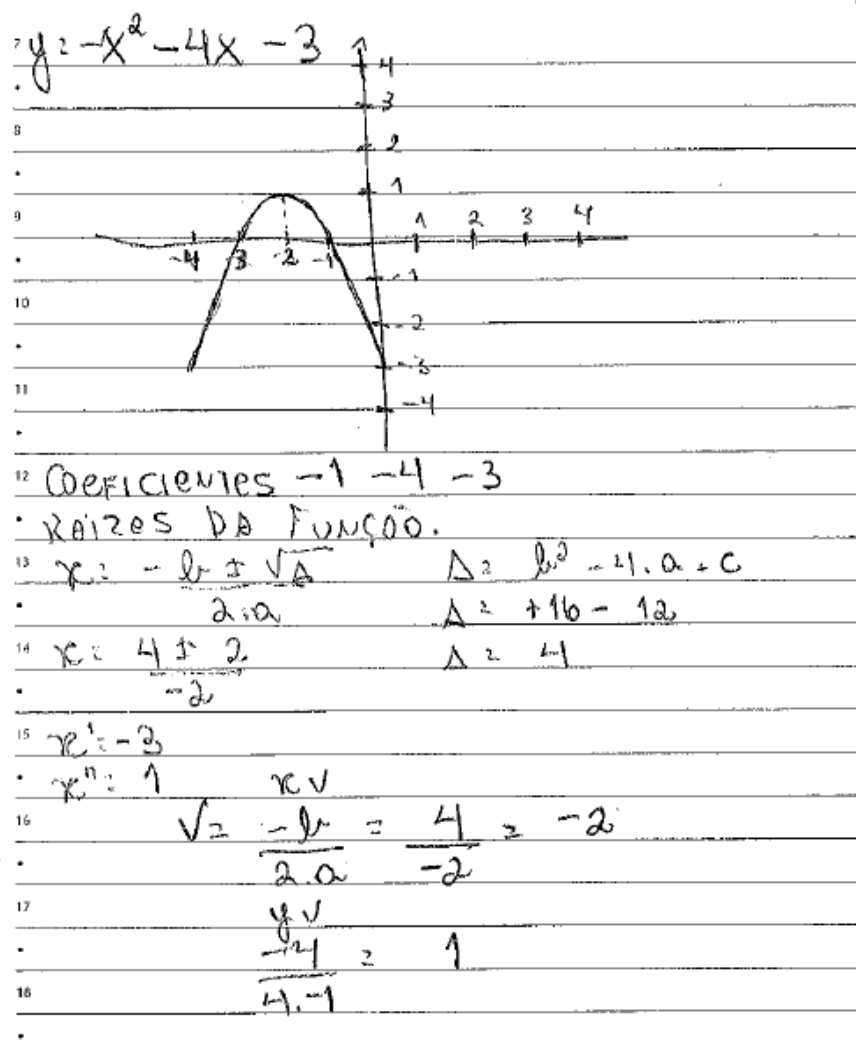 7 y = -x² - 4x - 3
4
3
8
2
1
9
1 2 3 4
-4 -3 -2 -1
-1
10
-2
-3
11
-4
12 COEFICIENTES -1 -4 -3
RAIZES DA FUNÇÃO.
13 x = -b ± √Δ Δ = b² - 4.a.c
2.a Δ = +16 - 12
14 x = 4 ± 2 Δ = 4
-2
15 x' = -3
x'' = 1 xv
16 V = -b = 4 = -2
2.a -2
17 yv
-4 = 1
18 4.-1